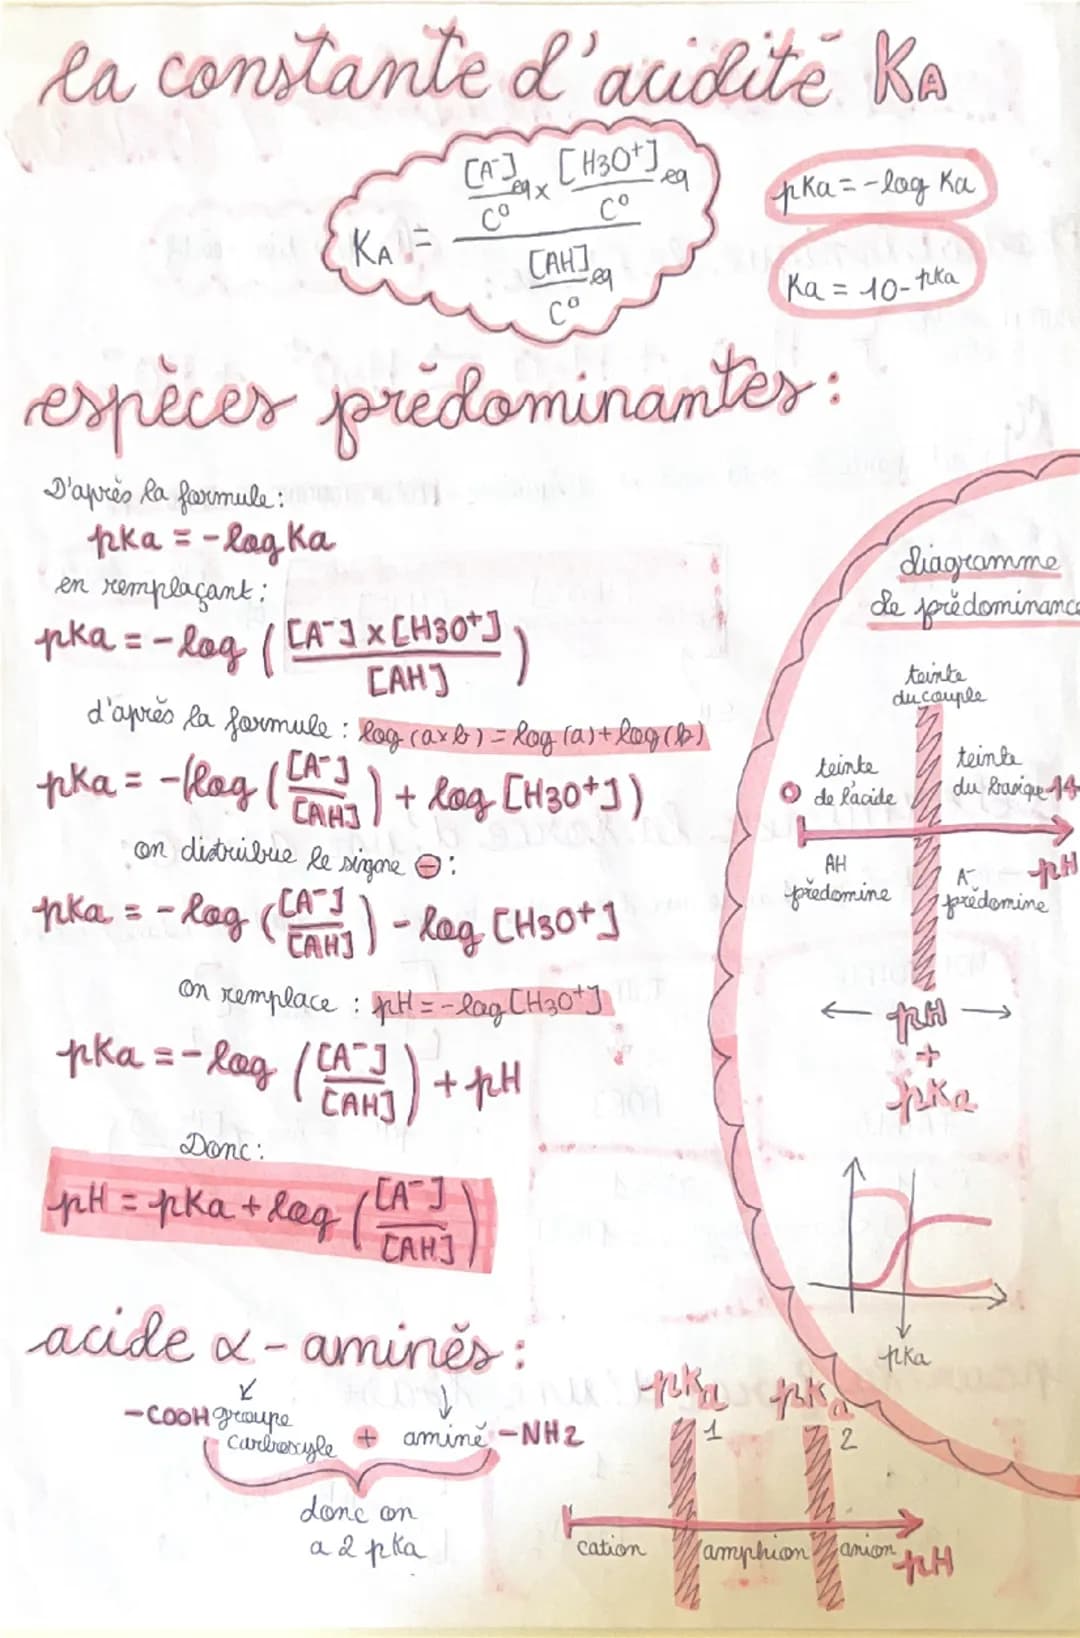 la constante d'acidité KA
KA = ([A-]eq/C° x [H3O+]eq/C°) / ([AH]eq/C°)
pKa = -log Ka
Ka = 10-pKa
espèces prédominantes :
D'après la formule :
pKa = -log Ka
en remplaçant :
pKa = -log ([A-] x [H3O+] / [AH])
d'après la formule : log (a x b) = log (a) + log (b)
pKa = -(log ([A-] / [AH]) + log [H3O+])
on distribue le singne ⊖ :
pKa = -log ([A-] / [AH]) - log [H3O+]
on remplace : pH = -log [H3O+]
pKa = -log ([A-] / [AH]) + pH
Donc :
pH = pKa + log ([A-] / [AH])
diagramme
de prédominance
teinte
du couple
teinte
de l'acide
teinte
du basique
0
14
pH
AH
prédomine
A-
prédomine
← pH →
+
pKa
pKa
acide α - aminés :
-COOH groupe
carboxyle + aminé -NH2
donc on
a 2 pKa
pKa 1
pKa 2
cation
amphion
anion
pH